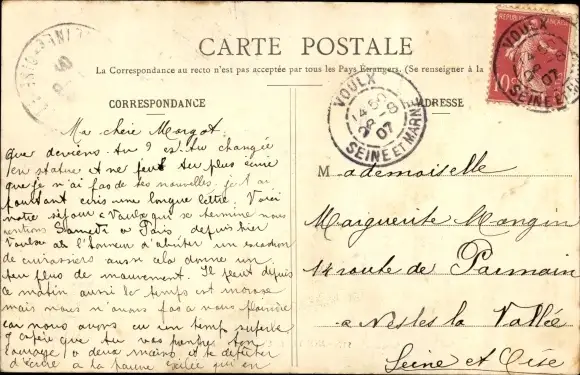 CARTE POSTALE
La Correspondance au recto n'est pas acceptée par tous les Pays Étrangers. (Se renseigner à la
CORRESPONDANCE
ADRESSE
REPUBLIQUE FRANCAISE
10c
VOULX
14 50
28 -8
07
SEINE ET MARNE
VOULX
07
SEINE ET
Ma chère Margot.
Que deviens-tu ? es-tu changée
en statue et ne peut tu plus écrire
que je n'ai pas de tes nouvelles. Je t'ai
pourtant écris une longue lettre. Voici
notre séjour a Voulx qui se termine nous
rentrons Samedi a Paris, depuis hier
Voulx a l'honneur d'abriter un escadron
de cuirassiers aussi cela donne un
peu plus de mouvement. Il pleut depuis
ce matin aussi le temps est morose
mais nous n'avons pas a nous plaindre
car nous avons eu un temps superbe
J'espère que tu vas prendre ton
courage a deux mains et te
d'écrire a la pauvre exilée qui en
Mademoiselle
Marguerite Mangin
14 route de Parmain
a Nesles la Vallée
Seine et Oise